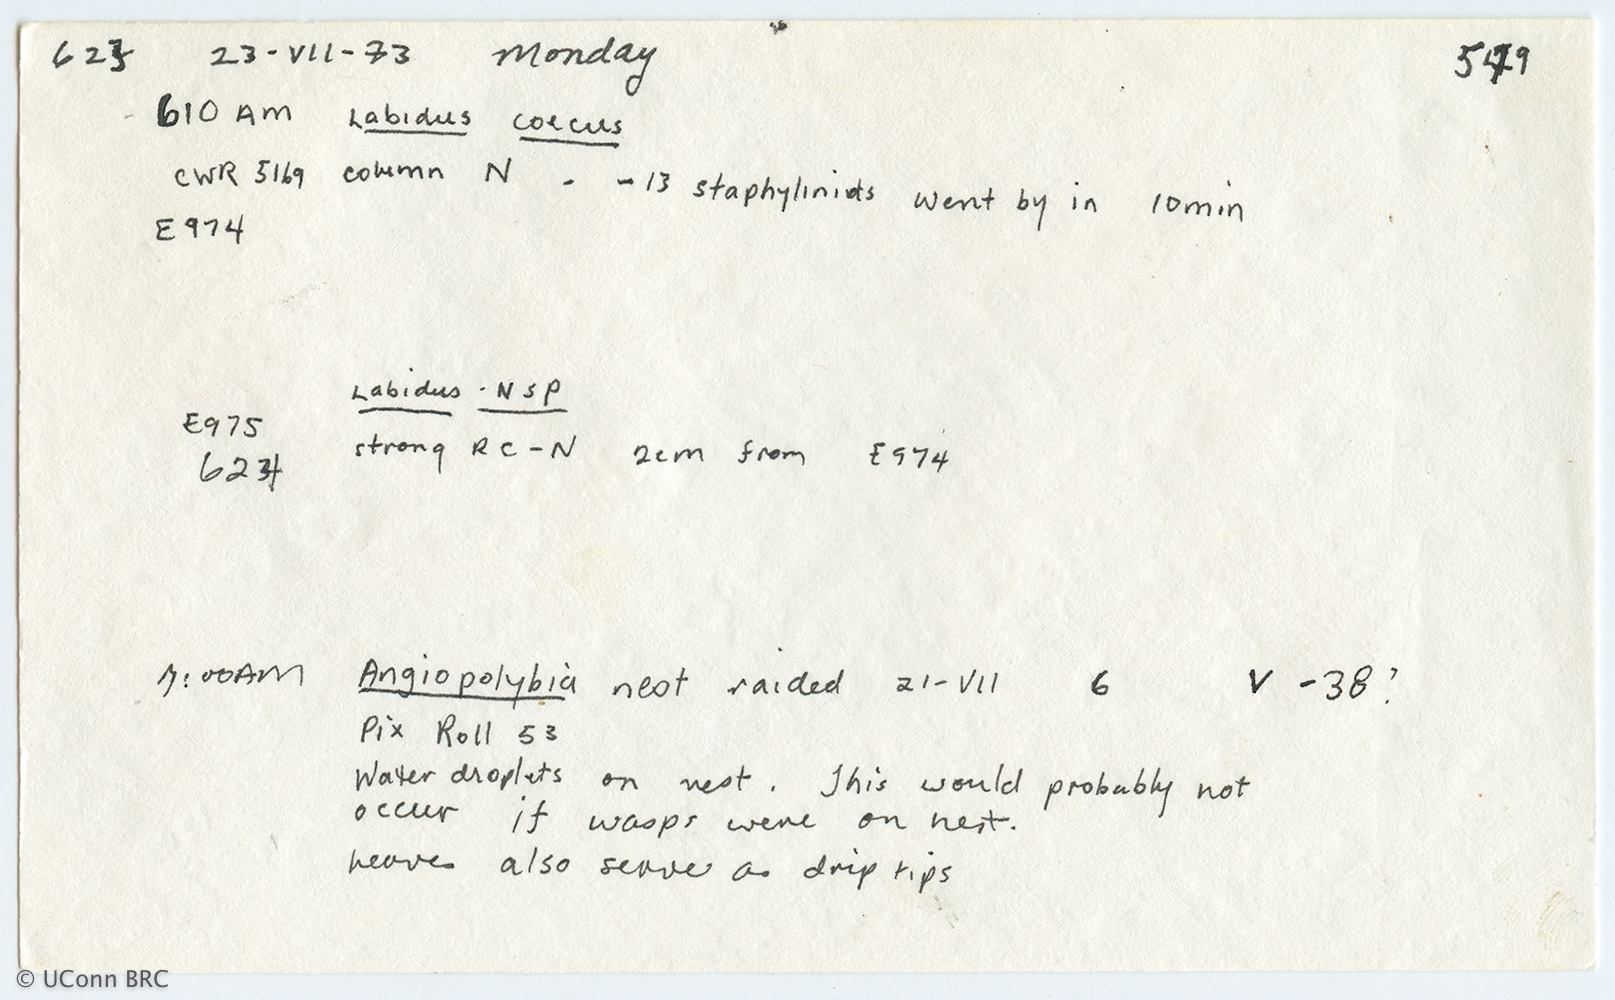 623 23-VII-73 Monday 5479
610 AM Labidus coecus
CWR 5169 column N - -13 staphylinids went by in 10min
E974
Labidus - NSP
E975 strong RC-N 2cm from E974
6234
7:00AM Angiopolybia nest raided 21-VII 6 V -38?
Pix Roll 53
Water droplets on nest. This would probably not
occur if wasps were on nest.
leaves also serve as drip tips
© UConn BRC